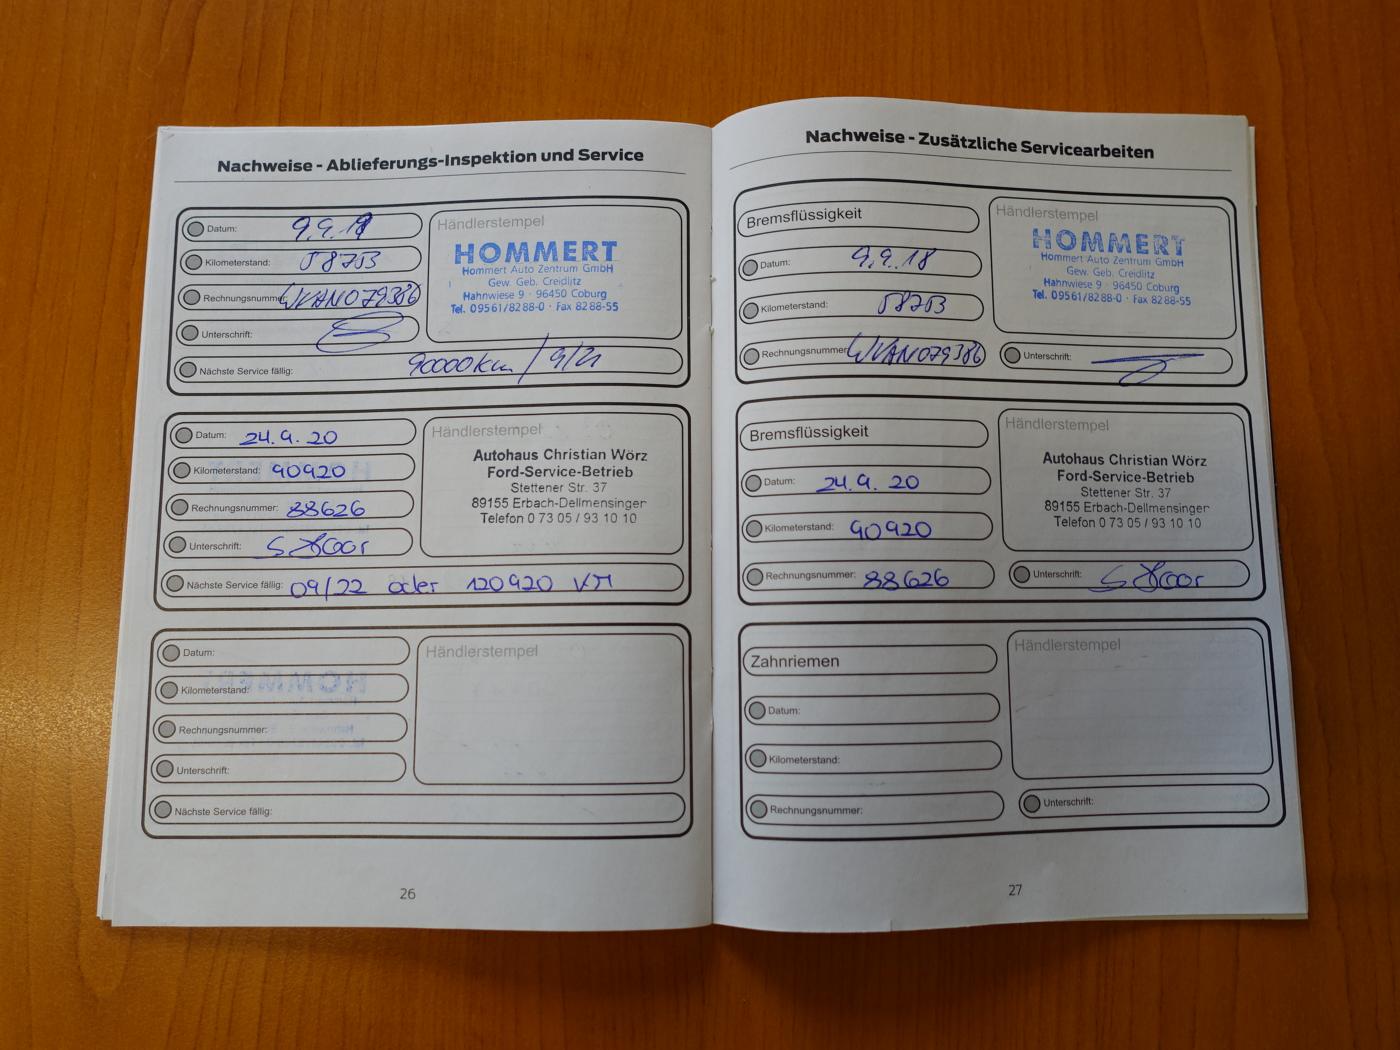 Nachweise - Ablieferungs-Inspektion und Service
Datum: 9.9.18
Kilometerstand: 58753
Rechnungsnummer: WKAN079386
Unterschrift:
Nächste Service fällig: 90000km / 9/21
Händlerstempel
HOMMERT
Hommert Auto Zentrum GmbH
Gew. Geb. Creidlitz
Hahnwiese 9 · 96450 Coburg
Tel. 09561/8288-0 · Fax 8288-55
Datum: 24.9.20
Kilometerstand: 90920
Rechnungsnummer: 88626
Unterschrift:
Nächste Service fällig: 09/22 oder 120920 KM
Händlerstempel
Autohaus Christian Wörz
Ford-Service-Betrieb
Stettener Str. 37
89155 Erbach-Dellmensingen
Telefon 0 73 05 / 93 10 10
Datum:
Kilometerstand:
Rechnungsnummer:
Unterschrift:
Nächste Service fällig:
Händlerstempel
26
Nachweise - Zusätzliche Servicearbeiten
Bremsflüssigkeit
Datum: 9.9.18
Kilometerstand: 58753
Rechnungsnummer: WKAN079386
Händlerstempel
HOMMERT
Hommert Auto Zentrum GmbH
Gew. Geb. Creidlitz
Hahnwiese 9 · 96450 Coburg
Tel. 09561/8288-0 · Fax 8288-55
Unterschrift:
Bremsflüssigkeit
Datum: 24.9.20
Kilometerstand: 90920
Rechnungsnummer: 88626
Händlerstempel
Autohaus Christian Wörz
Ford-Service-Betrieb
Stettener Str. 37
89155 Erbach-Dellmensingen
Telefon 0 73 05 / 93 10 10
Unterschrift:
Zahnriemen
Datum:
Kilometerstand:
Rechnungsnummer:
Händlerstempel
Unterschrift:
27